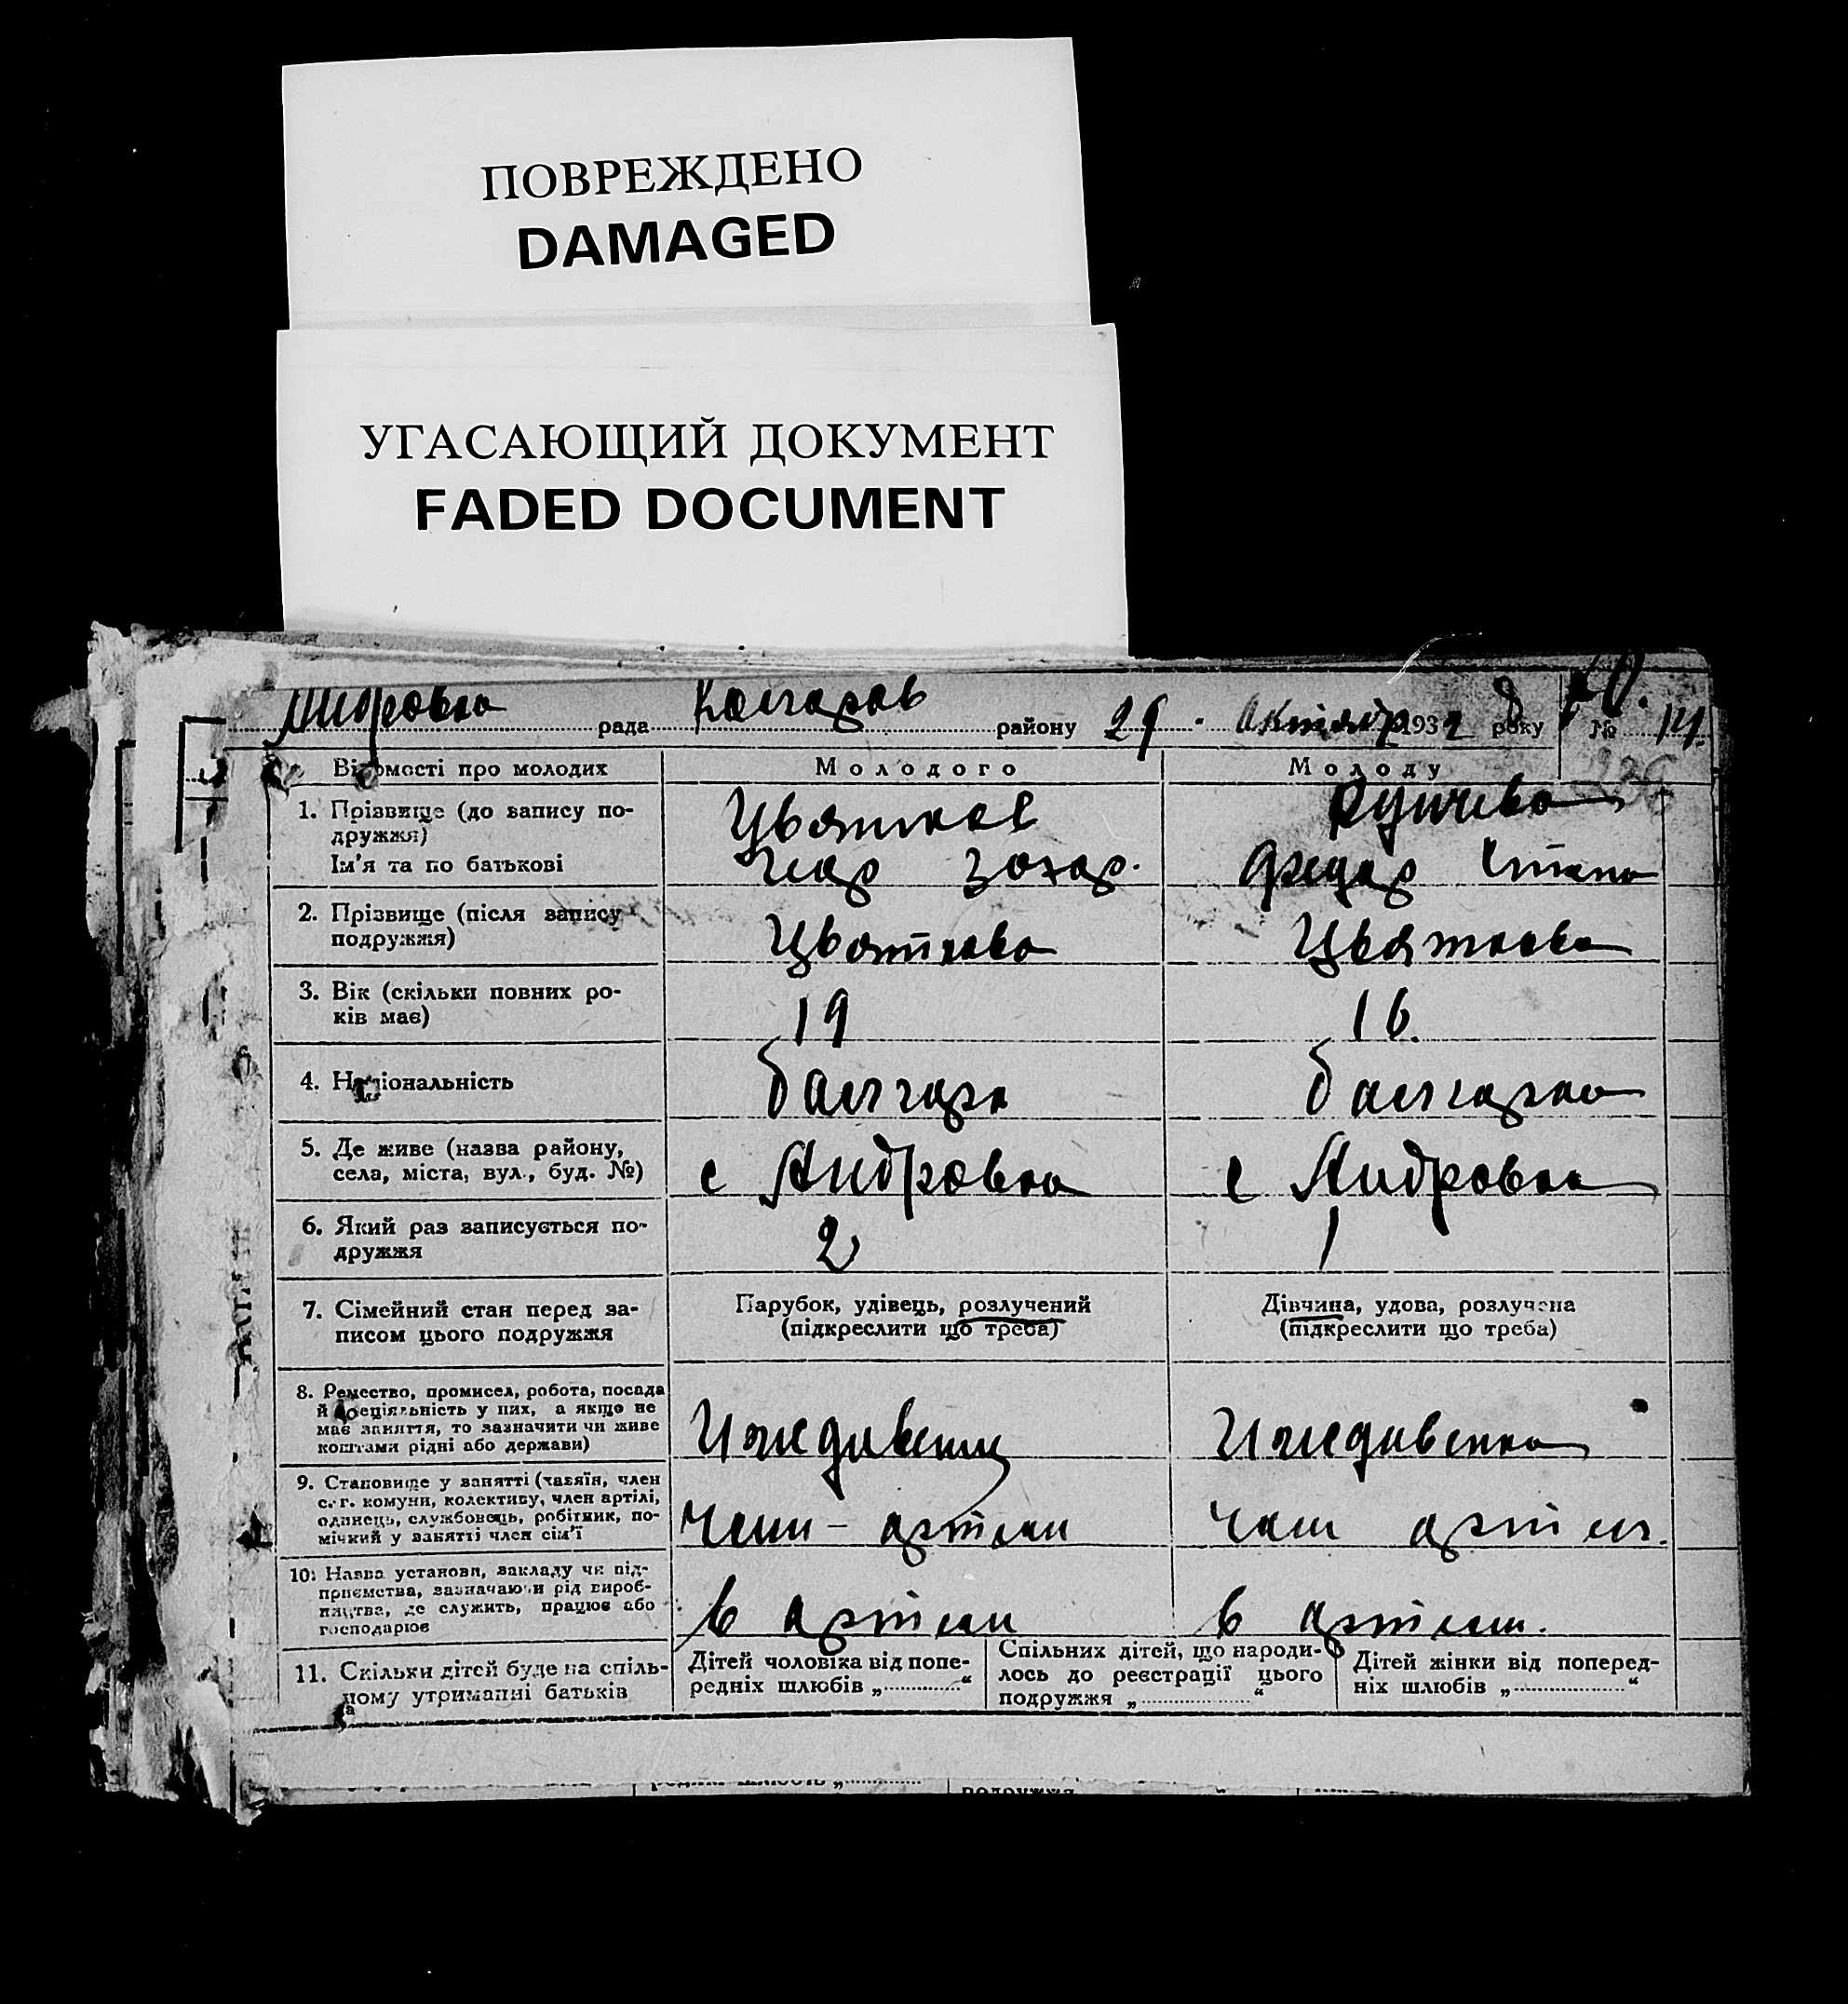 ПОВРЕЖДЕНО
DAMAGED
УГАСАЮЩИЙ ДОКУМЕНТ
FADED DOCUMENT
Андровка рада района району 29. Октябр 1932 року № 14.
Відомості про молодих
Молодого
Молоду
1. Прізвище (до запису подружжя)
Ім'я та по батькові
Цвятков
Захар.
Федар Степа
2. Прізвище (після запису
подружжя)
Цвяткова
Цвяткова
3. Вік (скільки повних ро-
ків має)
19
16.
4. Національність
балгарк
балгарка
5. Де живе (назва району,
села, міста, вул., буд. №)
с Андровка
с Андровка
6. Який раз записується по-
дружжя
2
1
7. Сімейний стан перед за-
писом цього подружжя
Парубок, удівець, розлучений
(підкреслити що треба)
Дівчина, удова, розлучена
(підкреслити що треба)
8. Ремество, промисел, робота, посада
й спеціяльність у них, а якщо не
має заняття, то зазначити чи живе
коштами рідні або держави)
Иждивенец
Иждивенка
9. Становище у занятті (хазяїн, член
с.-г. комуни, колективу, член артілі,
одинець, службовець, робітник, по-
мічний у занятті член сім'ї
член-артели
член артел.
10. Назва установи, закладу чи під-
приємства, зазначаючи рід вироб-
ництва, де служить, працює або
господарює
в артели
в артели.
11. Скільки дітей буде на спіль-
ному утриманні батьків
Дітей чоловіка від попе-
редніх шлюбів „ “
Спільних дітей, що народи-
лось до реєстрації цього
подружжя „ “
Дітей жінки від поперед-
ніх шлюбів „ “
подружжя